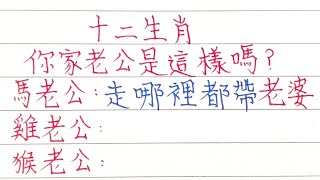 十二生肖
你家老公是這樣嗎？
馬老公：走哪裡都帶老婆
雞老公：
猴老公：